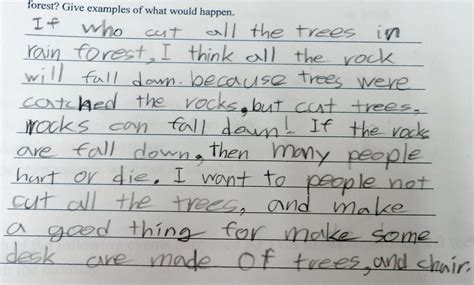 forest? Give examples of what would happen.
If who cut all the trees in
rain forest, I think all the rock
will fall down. because trees were
catched the rocks, but cut trees,
rocks can fall down! If the rocks
are fall down, then many people
hurt or die. I want to people not
cut all the trees, and make
a good thing for make some
desk are made of trees, and chair.